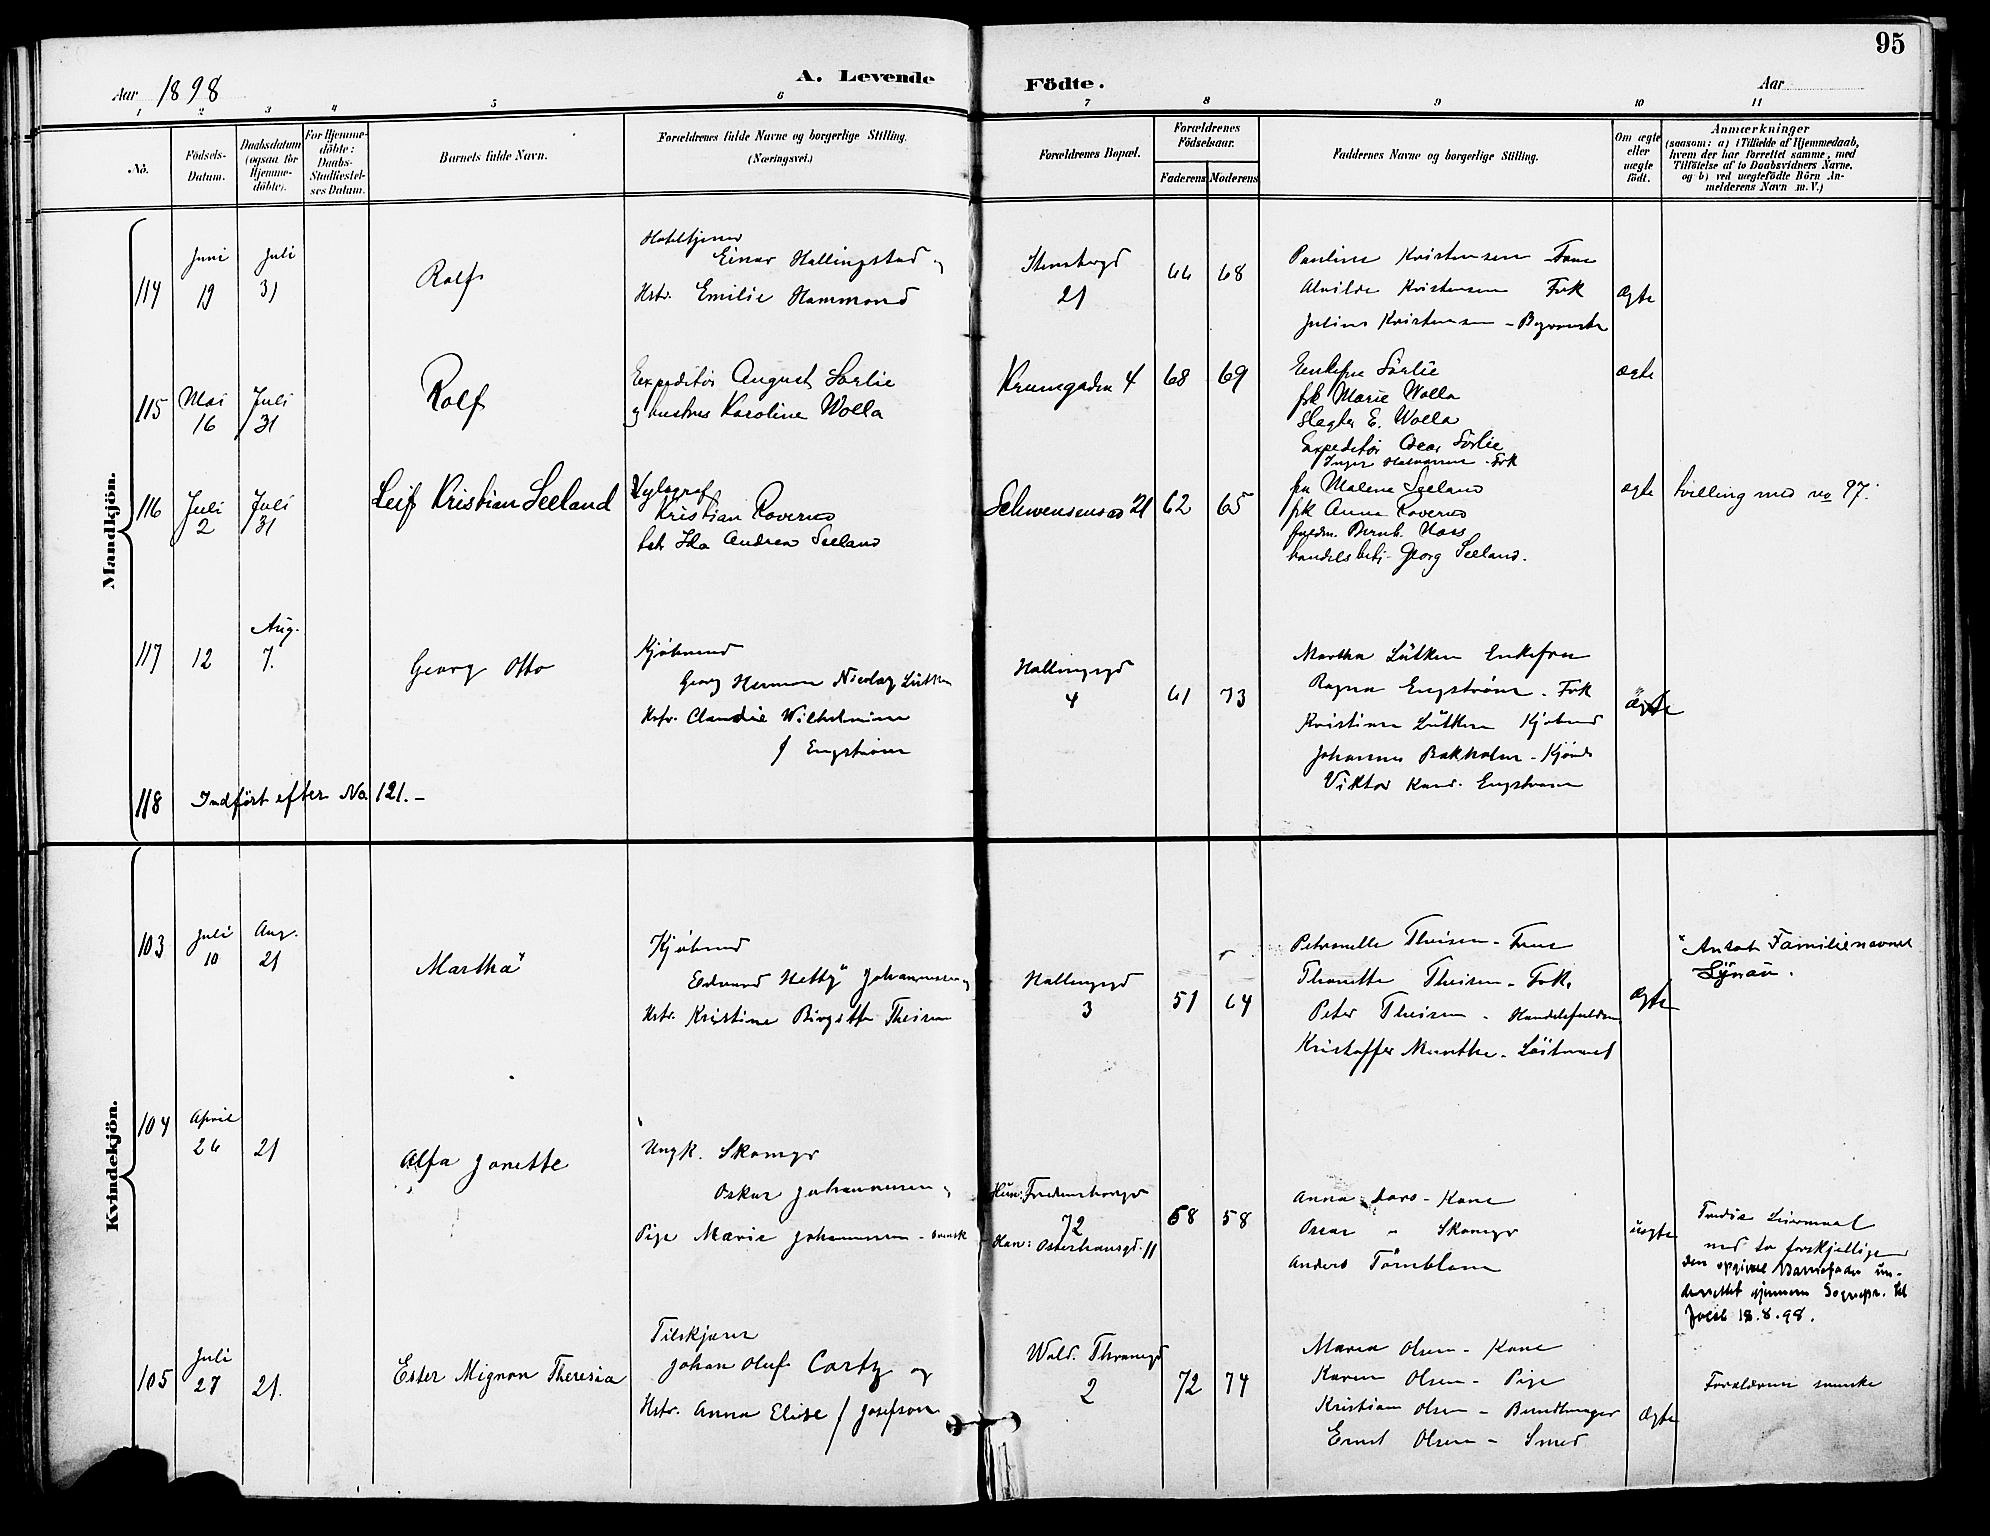 95
A. Levende Födte.
Aar 1898
Aar
1 2 3 4 5 6 7 8 9 10 11
No.
Födsels-Datum.
Daabsdatum (ogsaa for Hjemme-döbte).
For Hjemme-döbte: Daabs-Stadfæstel-ses Datum.
Barnets fulde Navn.
Forældrenes fulde Navne og borgerlige Stilling.
(Næringsvei.)
Forældrenes Bopæl.
Forældrenes Födselsaar.
Faderens Moderens
Faddernes Navne og borgerlige Stilling.
Om ægte eller uægte födt.
Anmærkninger
(saasom: a) i Tilfælde af Hjemmedaab,
hvem der har forrettet samme, med
Tilföielse af to Daabsvidners Navne.
og b) ved uægtefödte Börn An-
melderens Navn m. V.)
Mandkjön.
114
Juni 19
Juli 31
Rolf
Einar Hallingstad og
Hstr. Emilie Hammond
Stensbergd 21
66 68
Pauline Kristensen Frue
Alvilde Kristensen Frk
Julius Kristensen
ægte
115
Mai 16
Juli 31
Rolf
Expeditör August Sorlie
og hustru Karoline Wolla
Krumgaden 4
68 69
Enkefru Sörlie
frk Marie Wolla
Slagter E. Wolla
Expeditör Oscar Sörlie
ægte
116
Juli 2
Juli 31
Leif Kristian Seeland
Xylograf
Kristian Rovernd
Ida Andrea Seeland
Schwensensgd 21
62 65
fru Malene Seeland
frk Anna Rovernd
handelsbetj. Georg Seeland.
ægte
tvilling med no 97.
117
12
Aug. 7.
Georg Otto
Kjöbmd
Georg Herman Nicolay Lütken
Hstr. Claudie Wilhelmine
f Engström
Hallingsgd 4
61 73
Martha Lütken Enkefrue
Ragna Engström. Frk
Kristian Lütken Kjöbmd
Johannes Bakholm
Viktor Engström
ægte
118 Indfört efter No 121.-
Kvindekjön.
103
Juli 10
Aug. 21
Martha"
Kjöbmd
Edvard Hetty" Johannessen og
Hstr. Kristine Birgitte Theisen
Hallingsgd 3
51 64
Petronelle Theisen - Frue
Thonette Theisen - Frk.
Peter Theisen -
Kristoffer Munthe - Löitnant
ægte
"Antat Familienavnet
Lynau.
104
April 26
21
Alfa Jonette
Ungk. Skomgr
Oskar Johannessen og
Pige Marie Johannessen - svensk
Hun: Fredensborgvd 72
Han: Osterhausgd. 11
68 58
Anna Kone
Oscar " Skomgr
Anders Törnblom
uægte
Tredie Leiermaal
med to forskjellige
den opgivne Barnefader un-
derrettet gjennem Sognepr. til
18.8.98.
105
Juli 27
21.
Ester Mignon Theresia
Johan Oluf Cartz og
Hstr. Anna Elise f Josefson
Wald. Thranesgd 2
72 74
Maren Olsen - Kone
Karen Olsen - Pige
Kristian Olsen - Bundtmager
Ernst Olsen - Smed
ægte
Forældrene svenske